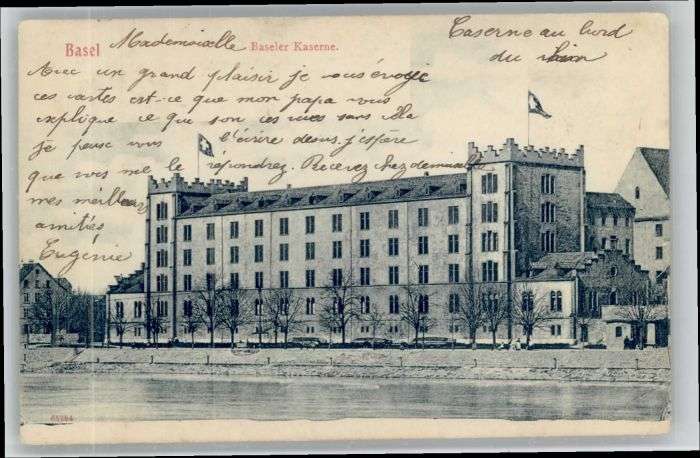 Basel Mademoiselle Baseler Kaserne.
Caserne au bord
du rhin
Avec un grand plaisir je vous évoyé
ces cartes est-ce que mon papa vous
explique ce que son ces vues sans cela
je peux vous l'écrire desus. j'espére
que vous me le repondrez. Recevez chez demuiselle
mes meilleurs
amitiés
Eugénie